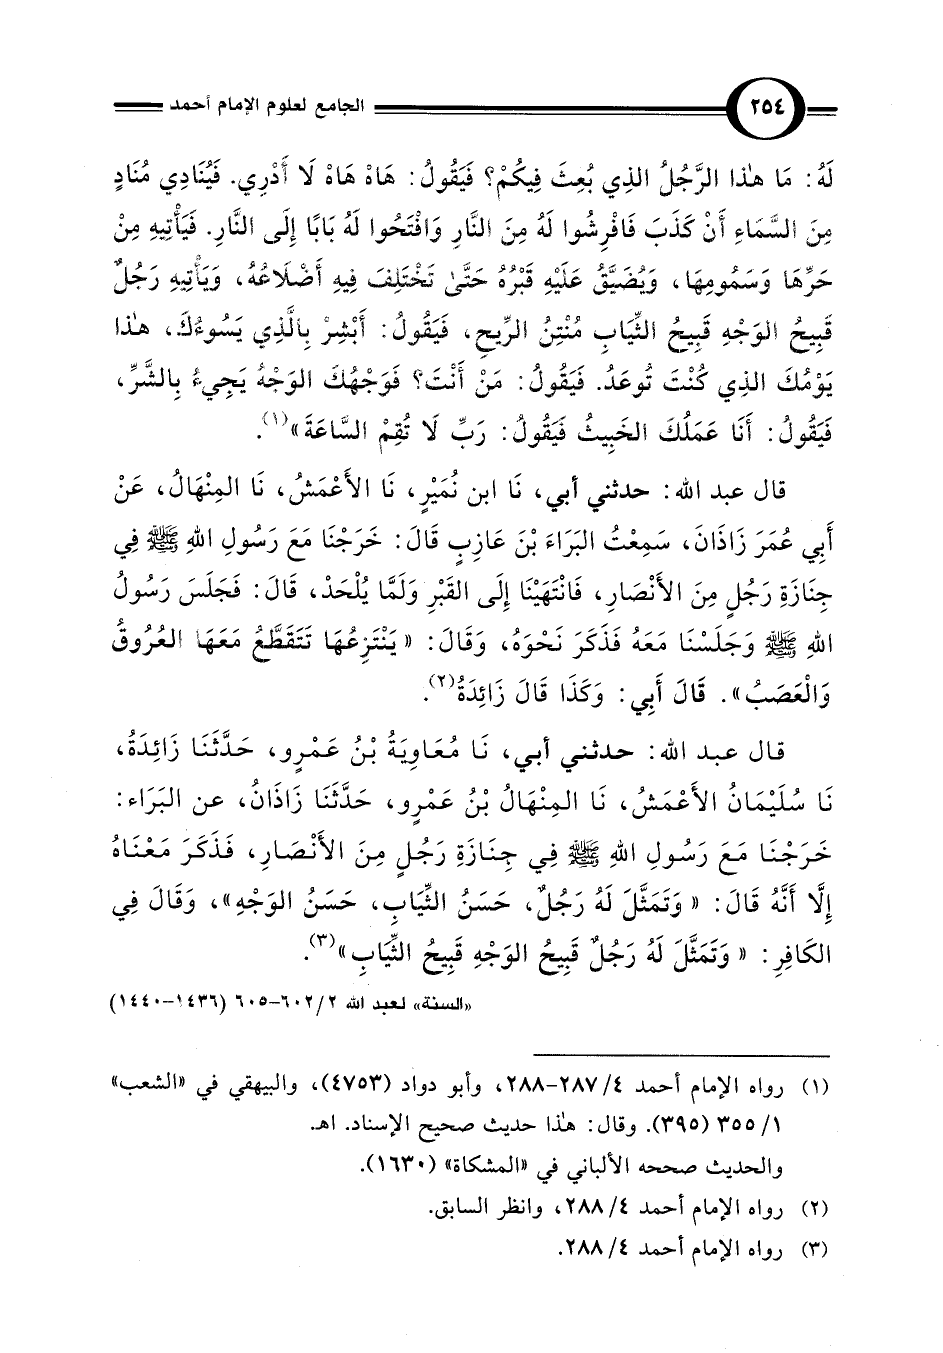 ٢٥٤ الجامع لعلوم الإمام أحمد
لَهُ: مَا هذا الرَّجُلُ الذِي بُعِثَ فِيكُمْ؟ فَيَقُولُ: هَاهْ هَاهْ لَا أَدْرِي. فَيُنَادِي مُنَادٍ
مِنَ السَّمَاءِ أَنْ كَذَبَ فَافْرِشُوا لَهُ مِنَ النَّارِ وَافْتَحُوا لَهُ بَابًا إِلَى النَّارِ. فَيَأْتِيهِ مِنْ
حَرِّهَا وَسَمُومِهَا، وَيُضَيَّقُ عَلَيْهِ قَبْرُهُ حَتَّىٰ تَخْتَلِفَ فِيهِ أَضْلَاعُهُ، وَيَأْتِيهِ رَجُلٌ
قَبِيحُ الوَجْهِ قَبِيحُ الثِّيَابِ مُنْتِنُ الرِّيحِ، فَيَقُولُ: أَبْشِرْ بِالَّذِي يَسُوءُكَ، هذا
يَوْمُكَ الذِي كُنْتَ تُوعَدُ. فَيَقُولُ: مَنْ أَنْتَ؟ فَوَجْهُكَ الوَجْهُ يَجِيءُ بِالشَّرِّ،
فَيَقُولُ: أَنَا عَمَلُكَ الخَبِيثُ فَيَقُولُ: رَبِّ لَا تُقِمْ السَّاعَةَ»(١).
قال عبد الله: حدثني أبي، نَا ابن نُمَيْرٍ، نَا الأَعْمَشُ، نَا المِنْهَالُ، عَنْ
أَبِي عُمَرَ زَاذَانَ، سَمِعْتُ البَرَاءَ بْنَ عَازِبٍ قَالَ: خَرَجْنَا مَعَ رَسُولِ اللهِ ﷺ فِي
جِنَازَةِ رَجُلٍ مِنَ الأَنْصَارِ، فَانْتَهَيْنَا إِلَى القَبْرِ وَلَمَّا يُلْحَدْ، قَالَ: فَجَلَسَ رَسُولُ
اللهِ ﷺ وَجَلَسْنَا مَعَهُ فَذَكَرَ نَحْوَهُ، وَقَالَ: «يَنْتَزِعُهَا تَتَقَطَّعُ مَعَهَا العُرُوقُ
وَالْعَصَبُ». قَالَ أَبِي: وَكَذَا قَالَ زَائِدَةُ(٢).
قال عبد الله: حدثني أبي، نَا مُعَاوِيَةُ بْنُ عَمْرٍو، حَدَّثَنَا زَائِدَةُ،
نَا سُلَيْمَانُ الأَعْمَشُ، نَا المِنْهَالُ بْنُ عَمْرٍو، حَدَّثَنَا زَاذَانُ، عن البَرَاء:
خَرَجْنَا مَعَ رَسُولِ اللهِ ﷺ فِي جِنَازَةِ رَجُلٍ مِنَ الأَنْصَارِ، فَذَكَرَ مَعْنَاهُ
إِلَّا أَنَّهُ قَالَ: «وَتَمَثَّلَ لَهُ رَجُلٌ، حَسَنُ الثِّيَابِ، حَسَنُ الوَجْهِ»، وَقَالَ فِي
الكَافِرِ: «وَتَمَثَّلَ لَهُ رَجُلٌ قَبِيحُ الوَجْهِ قَبِيحُ الثِّيَابِ»(٣).
«السنة» لعبد الله ٢/ ٦٠٢-٦٠٥ (١٤٣٦-١٤٤٠)
(١) رواه الإمام أحمد ٤/ ٢٨٧-٢٨٨، وأبو دواد (٤٧٥٣)، والبيهقي في «الشعب»
١/ ٣٥٥ (٣٩٥). وقال: هذا حديث صحيح الإسناد. اهـ.
والحديث صححه الألباني في «المشكاة» (١٦٣٠).
(٢) رواه الإمام أحمد ٤/ ٢٨٨، وانظر السابق.
(٣) رواه الإمام أحمد ٤/ ٢٨٨.